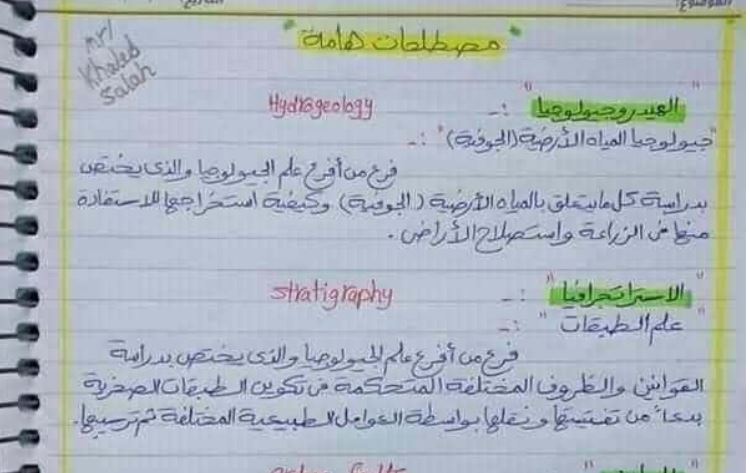 الموضوع:
التاريخ:
mr/
Khaled
Salah
" مصطلحات هامة "
" الهيدروجيولوجيا " :- Hydrogeology
"جيولوجيا المياه الأرضية (الجوفية)" :-
فرع من أفرع علم الجيولوجيا والذى يختص
بدراسة كل ما يتعلق بالمياه الأرضية (الجوفية) وكيفية استخراجها للاستفادة
منها فى الزراعة واستصلاح الأراضى .
" الاستراتجرافيا " :- stratigraphy
" علم الطبقات " :-
فرع من أفرع علم الجيولوجيا والذى يختص بدراسة
القوانين والظروف المختلفة المتحكمة فى تكوين الطبقات الصخرية
بدءاً من تفتيتها ونقلها بواسطة العوامل الطبيعية المختلفة ثم ترسيبها.